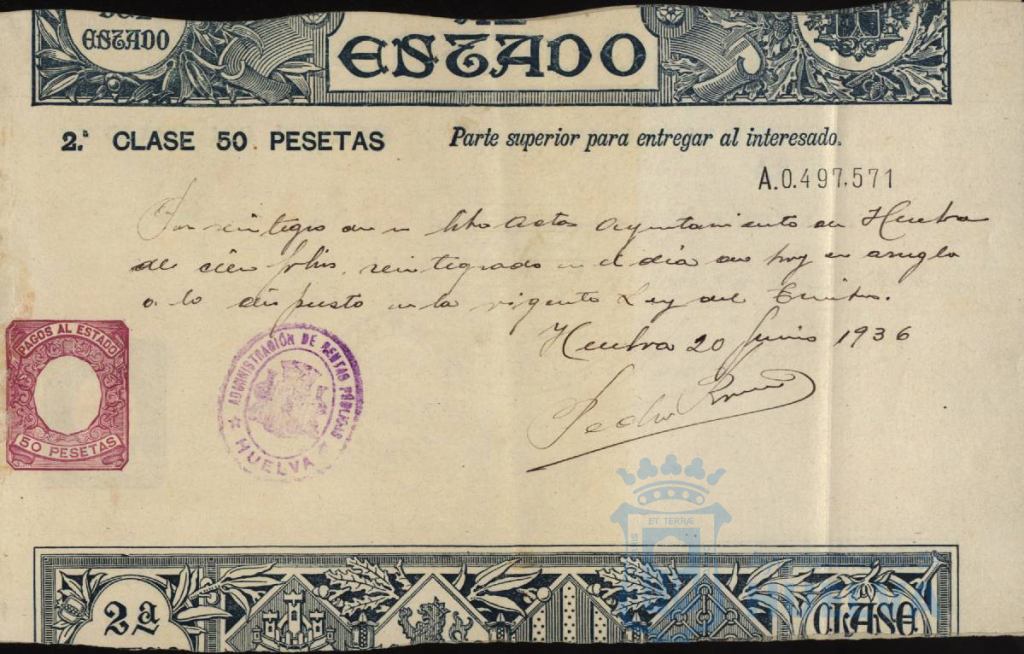 DEL
ESTADO
AL
ESTADO
2.ª CLASE 50 PESETAS
Parte superior para entregar al interesado.
A.0.497,571
Por reintegro de un libro Actas Ayuntamiento de Huelva
de cién folios, reintegrado en el día de hoy en arreglo
a lo dispuesto en la vigente Ley del Timbre.
Huelva 20 Junio 1936
Pedro
PAGOS AL ESTADO
50 PESETAS
ADMINISTRACIÓN DE RENTAS PÚBLICAS
HUELVA
ET TERRÆ
2ª
CLASE